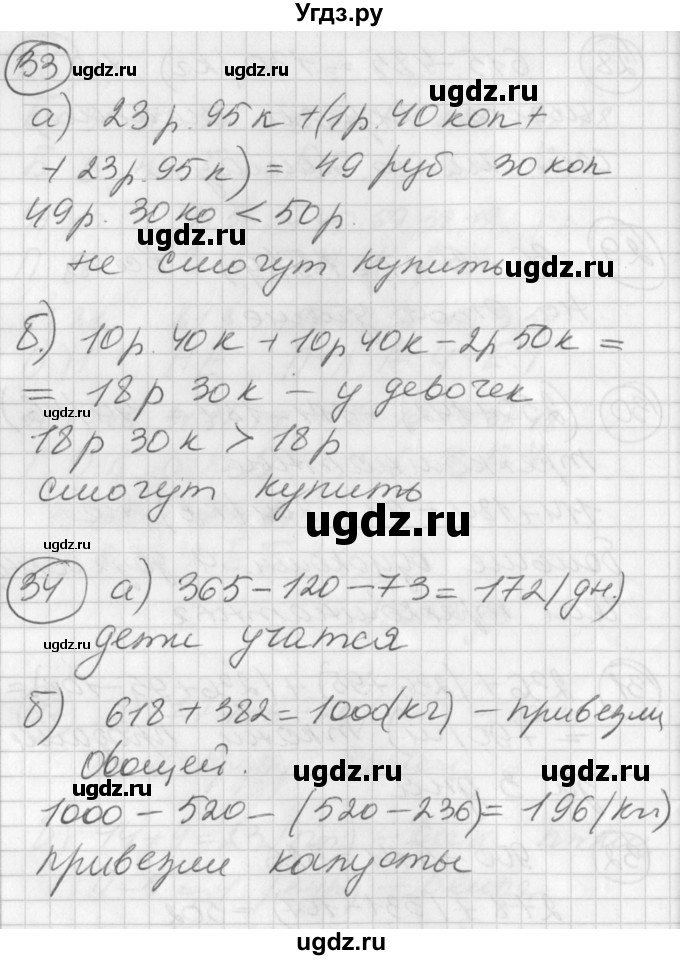 Угдз.ру
33 ugdz.ru ugdz.ru ugdz.ru
а) 23 р. 95 к + (1 р. 40 коп +
+ 23 р. 95 к) = 49 руб 30 коп
49 р. 30 ко < 50 р.
ugdz.ru
не смогут купить ugdz.ru
б.) 10 р. 40 к + 10 р 40 к – 2 р 50 к =
ugdz.ru
= 18 р 30 к – у девочек
18 р 30 к > 18 р
ugdz.ru
смогут купить
ugdz.ru
ugdz.ru
34 а) 365 – 120 – 73 = 172 (дн.)
ugdz.ru
дети учатся
б) 618 + 382 = 1000 (кг) – привезли
овощей.
ugdz.ru ugdz.ru ugdz.ru
1000 – 520 – (520 – 236) = 196 (кг)
привезли капусты
ugdz.ru